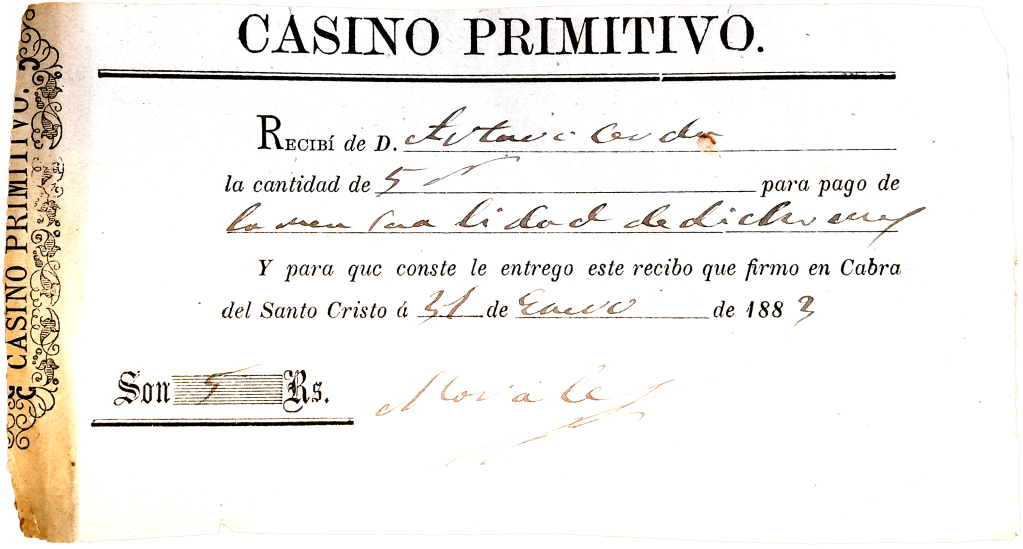 CASINO PRIMITIVO.
CASINO PRIMITIVO.
RECIBÍ de D. Antonio Cerda
la cantidad de 5 r para pago de
la mensualidad de dicho mes
Y para que conste le entrego este recibo que firmo en Cabra
del Santo Cristo á 31 de Enero de 1883
Son 5 Rs. Morales